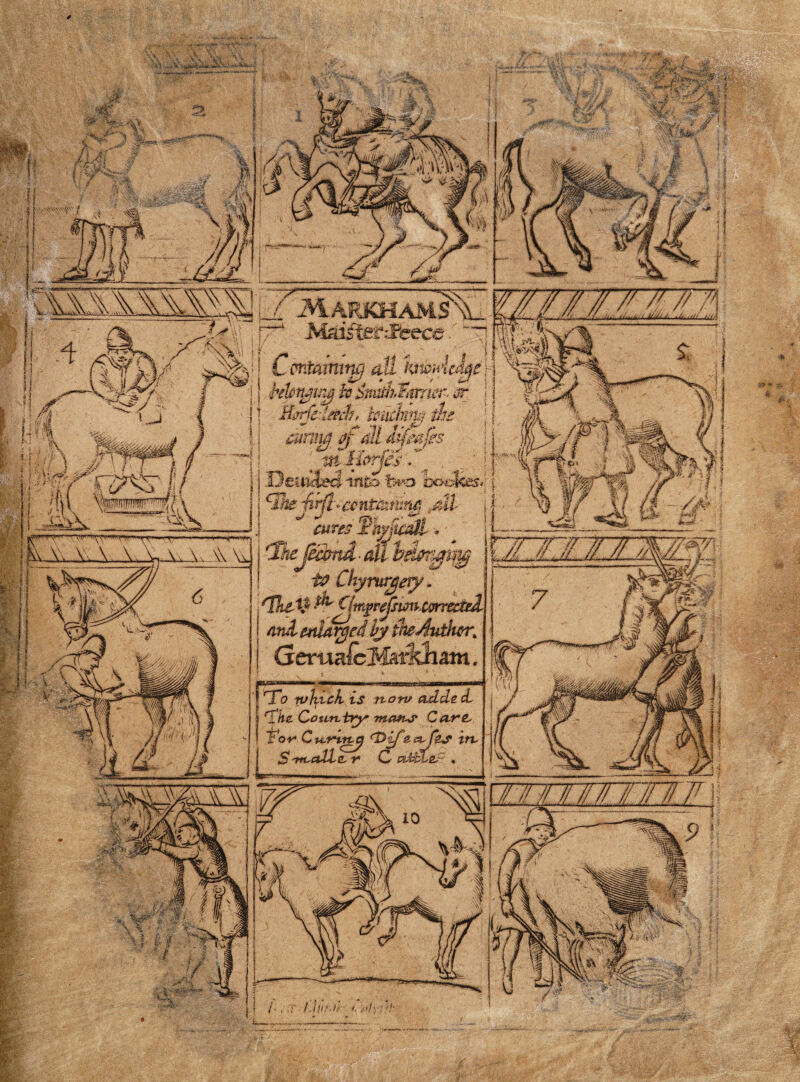 2
1
3
MARKHAMS
Maister=Peece
Containing all knowledge
belonging to Smith, Farrier, or
Horse-leech, touching the
curing of all diseases
in Horses.
Deuided into two bookes.
The first containing all
cures Physicall.
The second all belonging
to Chyrurgery.
The Impression corrected
and enlarged by the Author.
Geruase Markham.
To which is now added
The Countrymans Care
For Curing Diseases in
Smaller Cattle.
4
5
6
7
10
9